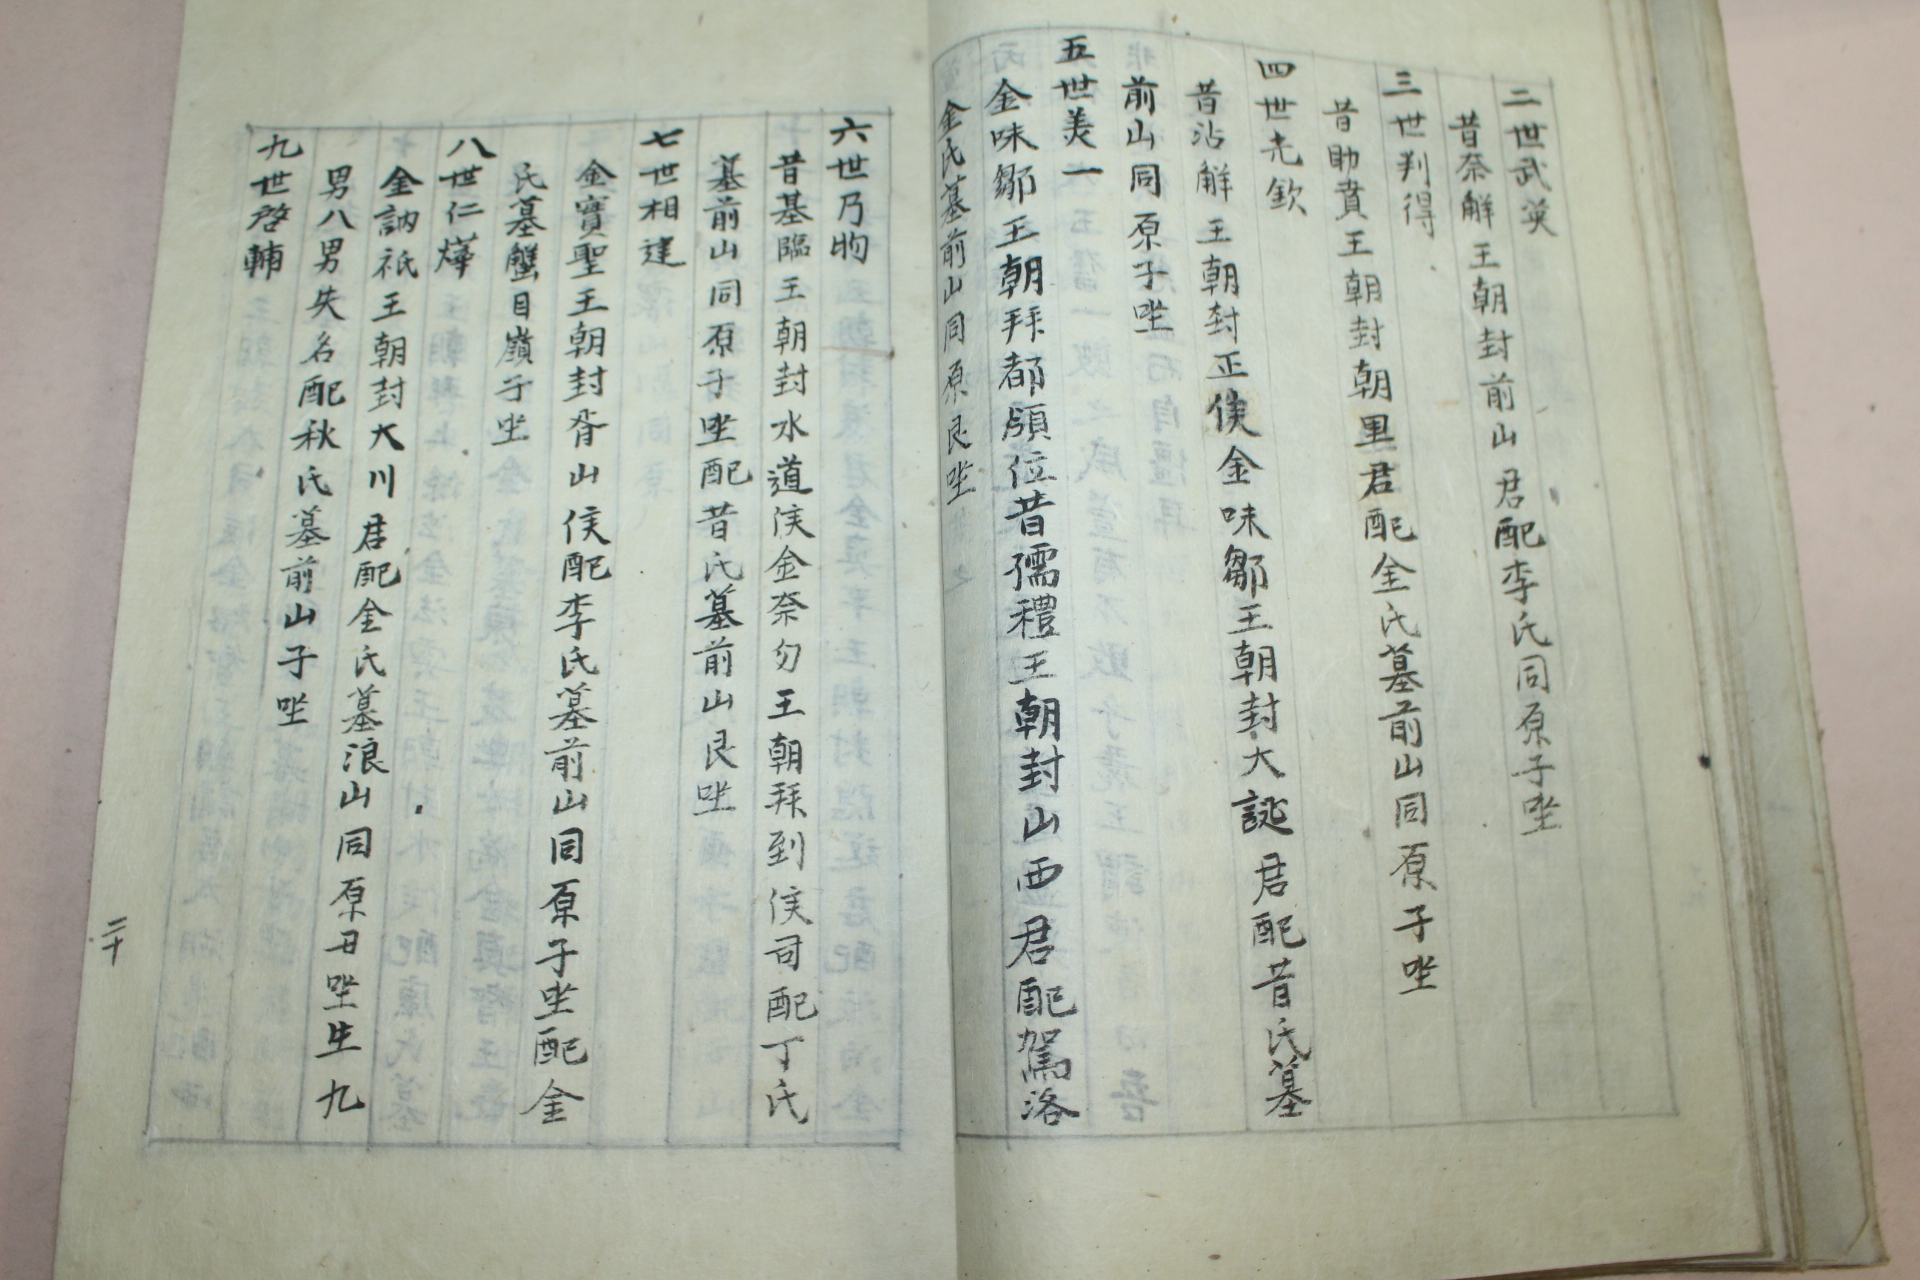 二世武英
昔奈解王朝封前山君配李氏同原子坐
三世判得
昔助賁王朝封朝里君配金氏墓前山同原子坐
四世光欽
昔沾解王朝封正侯金味鄒王朝封大誕君配昔氏墓
前山同原子坐
五世美一
金味鄒王朝拜都領位昔孺禮王朝封山西君配駕洛
金氏墓前山同原艮坐
六世乃昀
昔基臨王朝封水道侯金奈勿王朝拜到侯司配丁氏
墓前山同原子坐配昔氏墓前山艮坐
七世相達
金寶聖王朝封胥山侯配李氏墓前山同原子坐配金
氏墓蟹目嶺子坐
八世仁燁
金訥祇王朝封大川君配金氏墓浪山同原丑坐生九
男八男失名配秋氏墓前山子坐
九世啓輔
二十